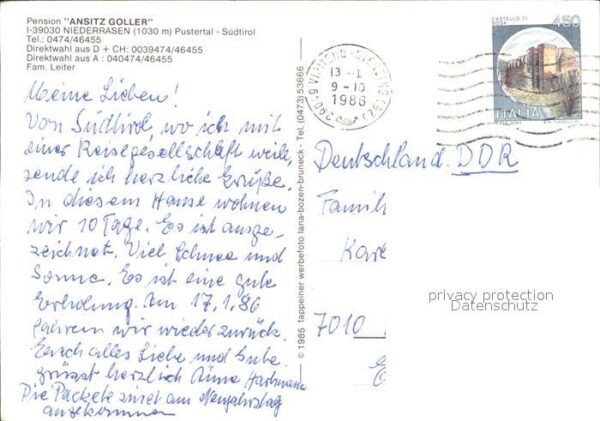 Pension "ANSITZ GOLLER"
I-39030 NIEDERRASEN (1030 m) Pustertal - Südtirol
Tel.: 0474/46455
Direktwahl aus D + CH: 0039474/46455
Direktwahl aus A : 040474/46455
Fam. Leiter
Meine Lieben!
Von Südtirol, wo ich mit
einer Reisegesellschaft weile,
sende ich herzliche Grüße.
In diesem Hause wohnen
wir 10 Tage. Es ist ausge-
zeichnet. Viel Schnee und
Sonne. Es ist eine gute
Erholung. Am 17.1.86
fahren wir wieder zurück.
Euch alles Liebe und Gute
grüsst herzlich Anna Hartmann
Die Packete sind am Neujahrstag
angekommen
© 1985 tappeiner werbefoto lana-bozen-bruneck - Tel. (0473) 53666
CASTELLO DI
450
ITALIA
13-1
9-10
1986
Deutschland DDR
Famili
Karl
7010
privacy protection
Datenschutz